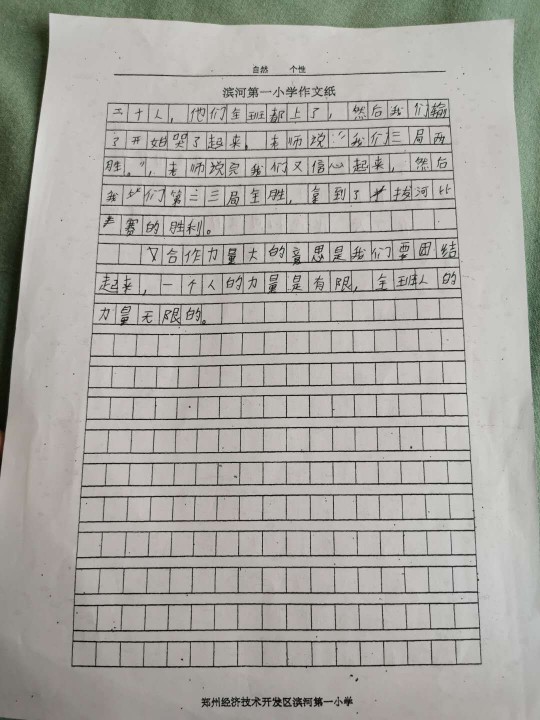 自然 个性
滨河第一小学作文纸
二十人，他们全班都上了，然后我们输
了开始哭了起来，老师说："我们三局两
胜。"，老师说完我们又信心起来，然后
我们第二三局全胜，拿到了拔河比
赛的胜利。
合作力量大的意思是我们要团结
起来，一个人的力量是有限，全班人的
力量无限的。
郑州经济技术开发区滨河第一小学